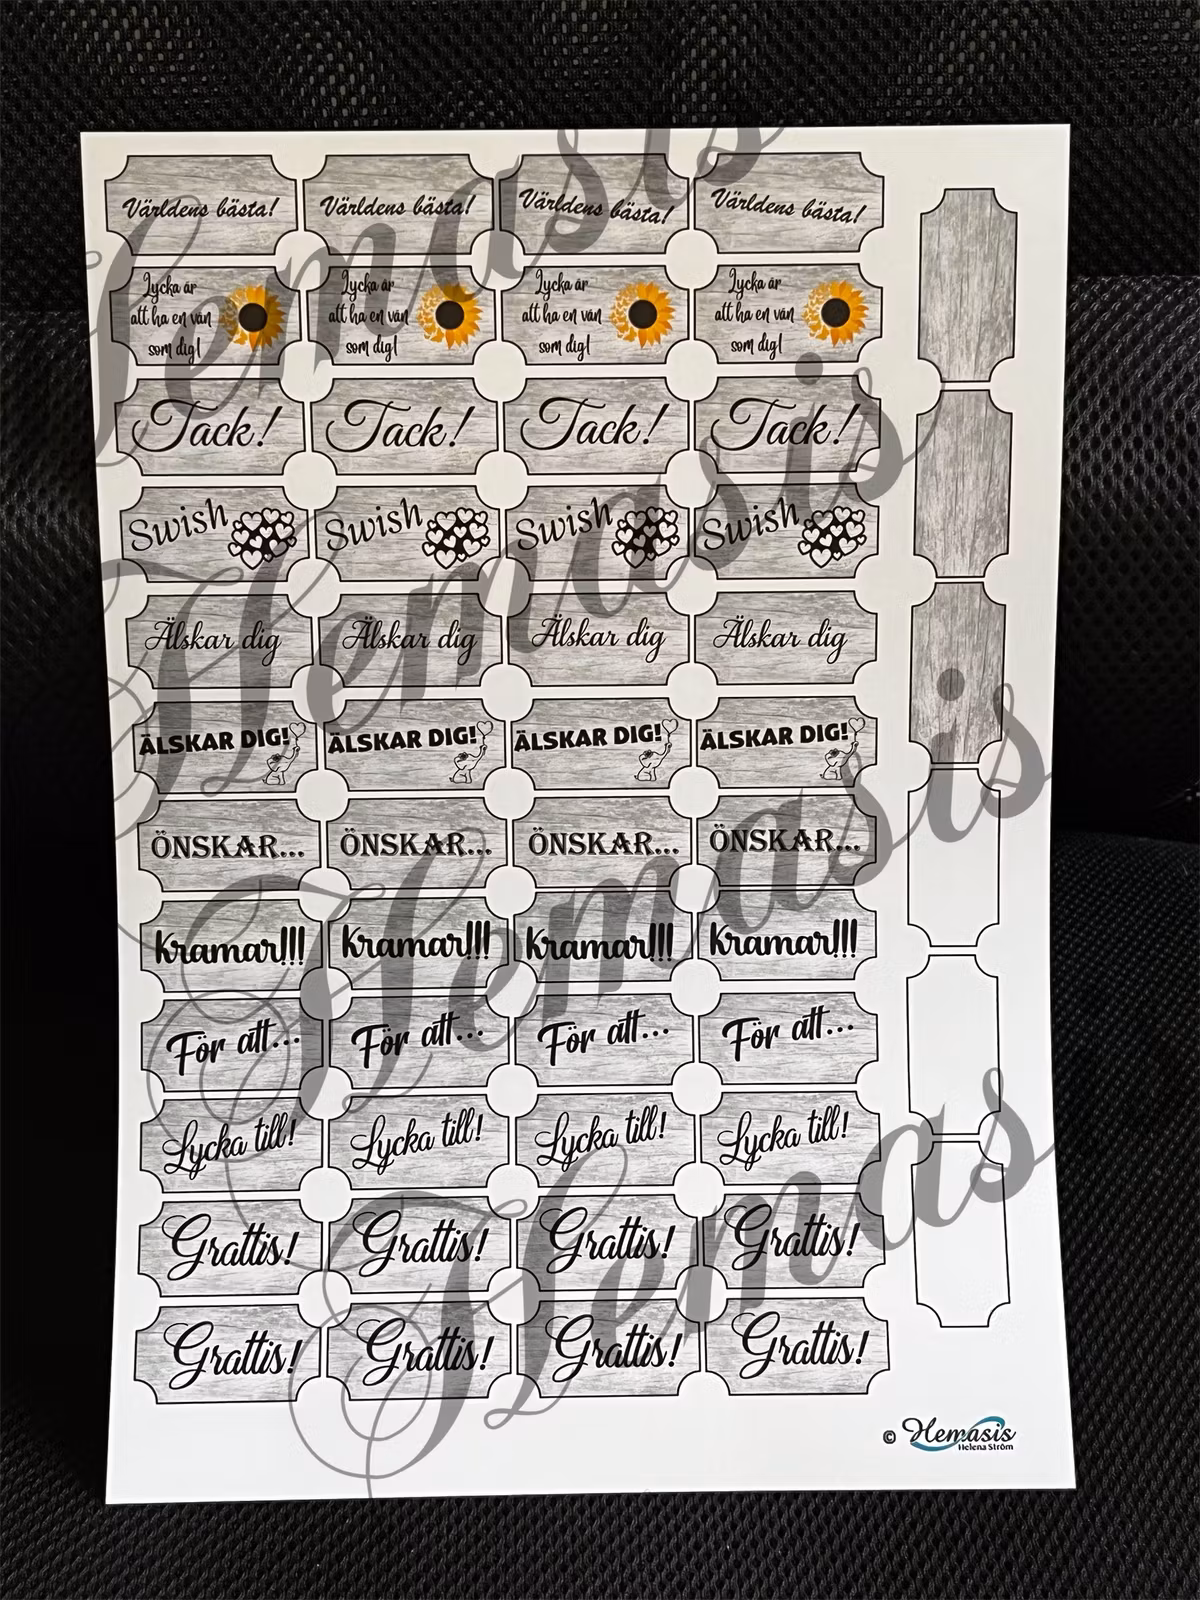 Världens bästa! Världens bästa! Världens bästa! Världens bästa!
Lycka är Lycka är Lycka är Lycka är
att ha en vän att ha en vän att ha en vän att ha en vän
som dig! som dig! som dig! som dig!
Tack! Tack! Tack! Tack!
Swish Swish Swish Swish
Älskar dig Älskar dig Älskar dig Älskar dig
ÄLSKAR DIG! ÄLSKAR DIG! ÄLSKAR DIG! ÄLSKAR DIG!
ÖNSKAR... ÖNSKAR... ÖNSKAR... ÖNSKAR...
Kramar!!! Kramar!!! Kramar!!! Kramar!!!
För att... För att... För att... För att...
Lycka till! Lycka till! Lycka till! Lycka till!
Grattis! Grattis! Grattis! Grattis!
Grattis! Grattis! Grattis! Grattis!
© Hemasis
Helena Ström
Hemasis
Hemasis
Hemasis
Hemas